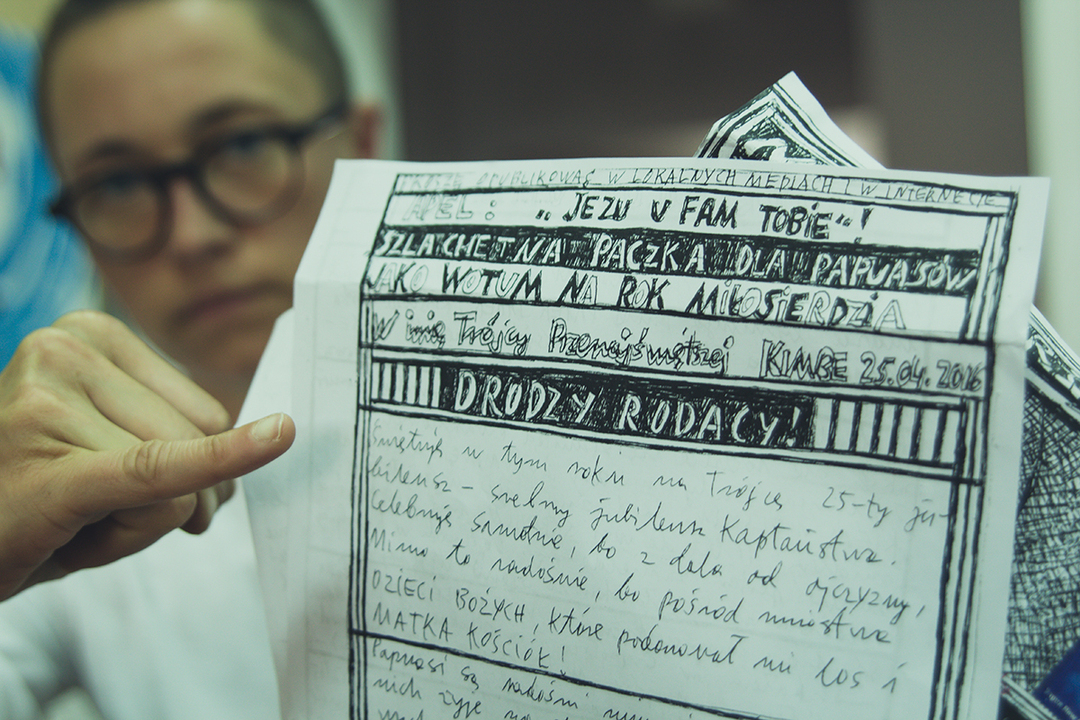 PROSZĘ OPUBLIKOWAĆ W LOKALNYCH MEDIACH I W INTERNECIE
APEL: „JEZU U FAM TOBIE"!
SZLACHETNA PACZKA DLA PAPUASÓW
JAKO WOTUM NA ROK MIŁOSIERDZIA
W imię Trójcy Przenajświętszej KIMBE 25.04.2016
DRODZY RODACY!
Świętuję w tym roku na Trójcę 25-ty ju-
bileusz - srebrny jubileusz Kapłaństwa.
Celebruję samotnie, bo z dala od ojczyzny,
Mimo to radośnie, bo pośród mnóstwa
DZIECI BOŻYCH, które podarował mi los i
MATKA KOŚCIÓŁ!
Papuasi są radośni
nich żyje